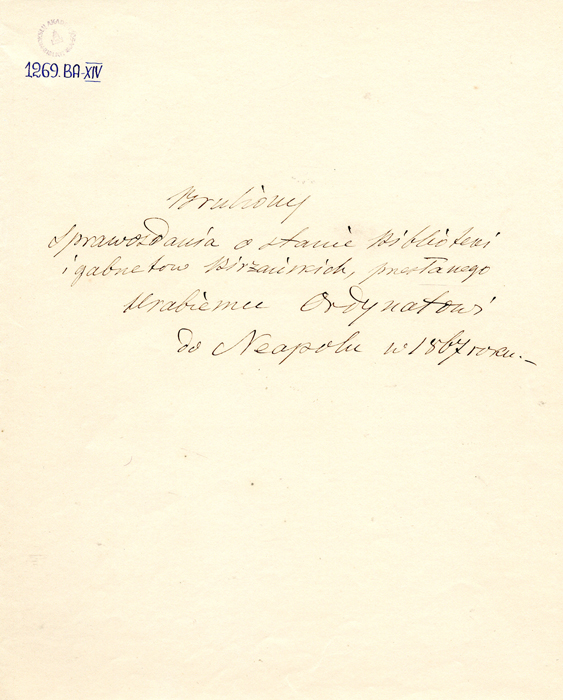 1269.BA-XIV
Bruliony
Sprawozdania o stanie Biblioteki
i gabnetow Birżańskich, przesłanego
Hrabiemu Ordynatowi
do Neapolu w 1867 roku.–